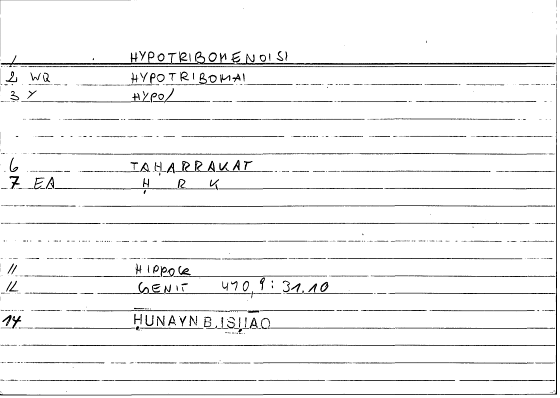 1 HYPOTRIBOMENOISI
2 WQ HYPOTRIBOMAI
3 Y HYPO/
6 TAḤARRAKAT
7 EA Ḥ R K
11 HIPPOCR
12 GENIT 470,9: 31.10
14 ḤUNAYN B.ISḤĀQ